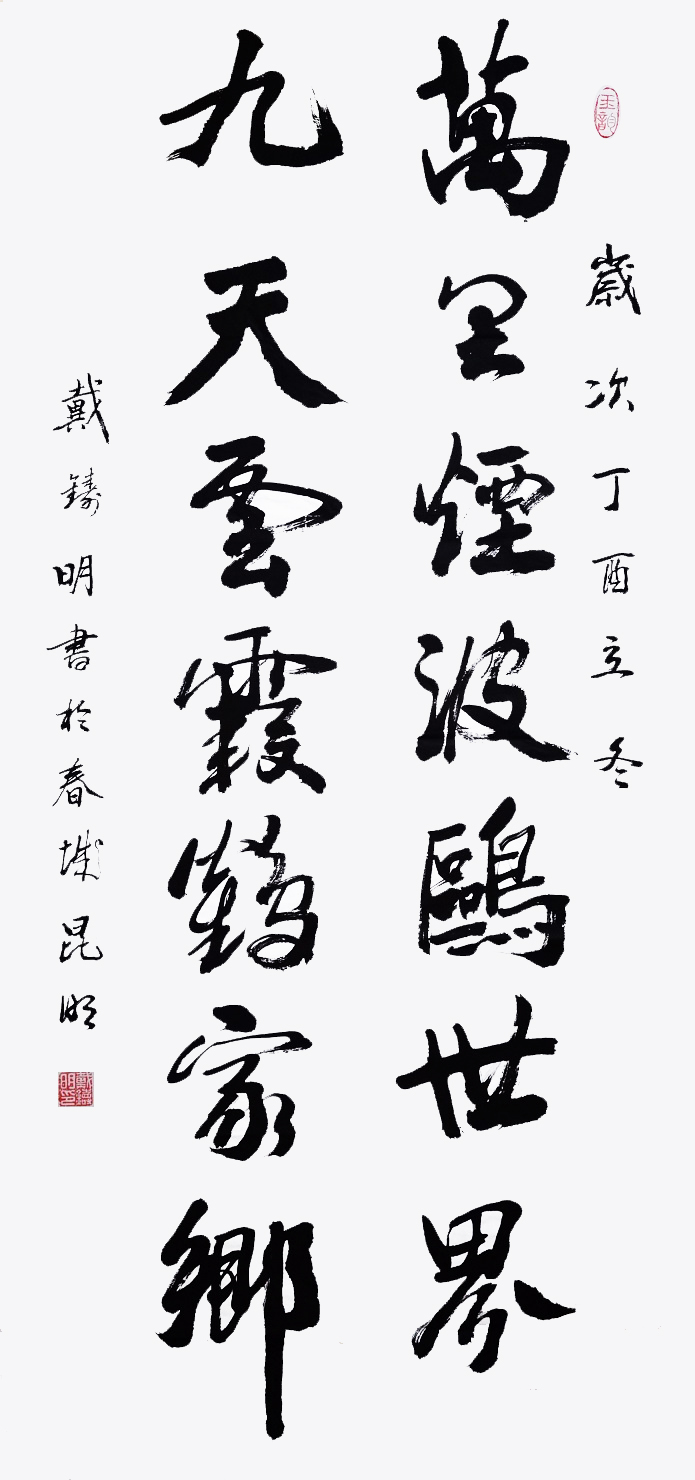 歲次丁酉立冬
萬里煙波鷗世界
九天雲霞鶴家鄉
戴鑄明書於春城昆明